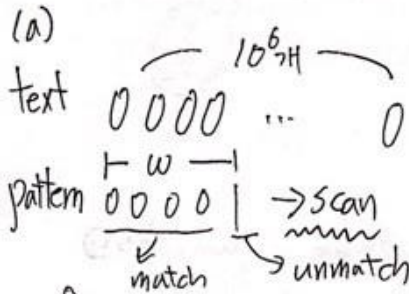 (a)
10^6개
text 0 0 0 0 ... 0
⊢ w ⊣
pattern 0 0 0 0 1 → scan
match unmatch